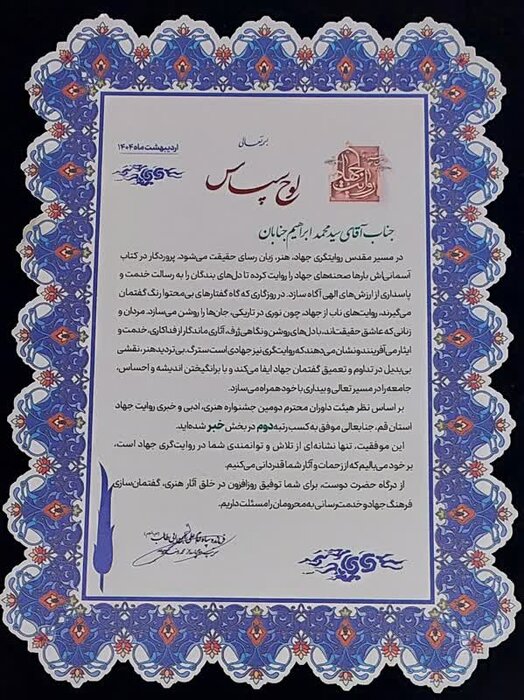 بسمه تعالی
اردیبهشت ماه ۱۴۰۴
روایت جهاد
لوح سپاس
جناب آقای سید محمد ابراهیم جنابان
در مسیر مقدس روایتگری جهاد، هنر، زبان رسای حقیقت می‌شود. پروردگار در کتاب
آسمانی‌اش بارها صحنه‌های جهاد را روایت کرده تا دل‌های بندگان را به رسالت خدمت و
پاسداری از ارزش‌های الهی آگاه سازد. در روزگاری که گاه گفتارهای بی‌محتوا رنگ گفتمان
می‌گیرند، روایت‌های ناب از جهاد، چون نوری در تاریکی، جان‌ها را روشن می‌سازد. مردان و
زنانی که عاشق حقیقت‌اند، با دل‌های روشن و نگاهی ژرف، آثاری ماندگار از فداکاری، خدمت و
ایثار می‌آفرینند و نشان می‌دهند که روایت‌گری نیز جهادی است سترگ. بی‌تردید هنر، نقشی
بی‌بدیل در تداوم و تعمیق گفتمان جهاد ایفا می‌کند و با برانگیختن اندیشه و احساس،
جامعه را در مسیر تعالی و بیداری با خود همراه می‌سازد.
بر اساس نظر هیئت داوران محترم دومین جشنواره هنری، ادبی و خبری روایت جهاد
استان قم، جنابعالی موفق به کسب رتبه دوم در بخش خبر شده‌اید.
این موفقیت، تنها نشانه‌ای از تلاش و توانمندی شما در روایت‌گری جهاد است،
بر خود می‌بالیم که از زحمات و آثار شما قدردانی می‌کنیم.
از درگاه حضرت دوست، برای شما توفیق روزافزون در خلق آثار هنری، گفتمان‌سازی
فرهنگ جهاد و خدمت‌رسانی به محرومان را مسئلت داریم.